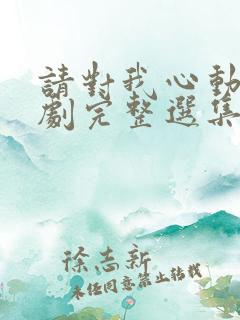 請對我心動
劇完整選集
徐志新
未经同意禁止转载